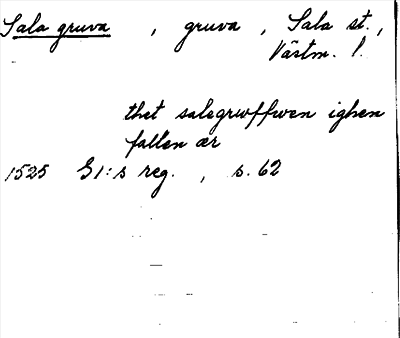 Sala gruva , gruva , Sala st.,
Västm. l.
thet salegruffwen ighen
fallen ær
1525 G1:s reg. , s. 62